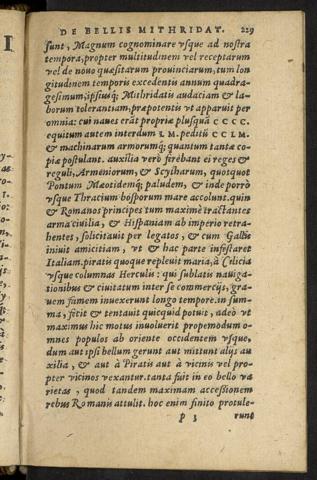 DE BELLIS MITHRIDAT. 229
sunt, Magnum cognominare vsque ad nostra
tempora, propter multitudinem vel receptarum
vel de nouo quæsitarum prouinciarum, tum lon
gitudinem temporis excedentis annum quadra-
gesimum, ipsiusq; Mithridatis audaciam & la-
borum tolerantiam, præpotentis vt apparuit per
omnia: cui naues erāt propriæ plusquā CCCC.
equitum autem interdum L M. peditū CCL M.
& machinarum armorumq; quantum tantæ co-
piæ postulant. auxilia verò ferebant ei reges &
reguli, Armeniorum, & Scytharum, quotquot
Pontum Mæotidemq; paludem, & inde porrò
vsque Thracium bosporum mare accolunt. quin
& Romanos principes tum maximè tractantes
arma ciuilia, & Hispaniam ab imperio retra-
hentes, solicitauit per legatos, & cum Gallis
iniuit amicitiam, vt & hac parte infestaret
Italiam. piratis quoque repleuit maria, à Cilicia
vsque columnas Herculis: qui sublatis nauiga-
tionibus & ciuitatum inter se commercijs, gra-
uem famem inuexerunt longo tempore. in sum-
ma, fecit & tentauit quicquid potuit, adeò vt
maximus hic motus inuoluerit propemodum o-
mnes populos ab oriente occidentem vsque,
dum aut ipsi bellum gerunt aut mittunt alijs au
xilia, & aut à Piratis aut à vicinis vel pro-
pter vicinos vexantur. tanta fuit in eo bello va
rietas, quod tandem maximam accessionem
rebus Romanis attulit. hoc enim finito protule-
p 3 runt